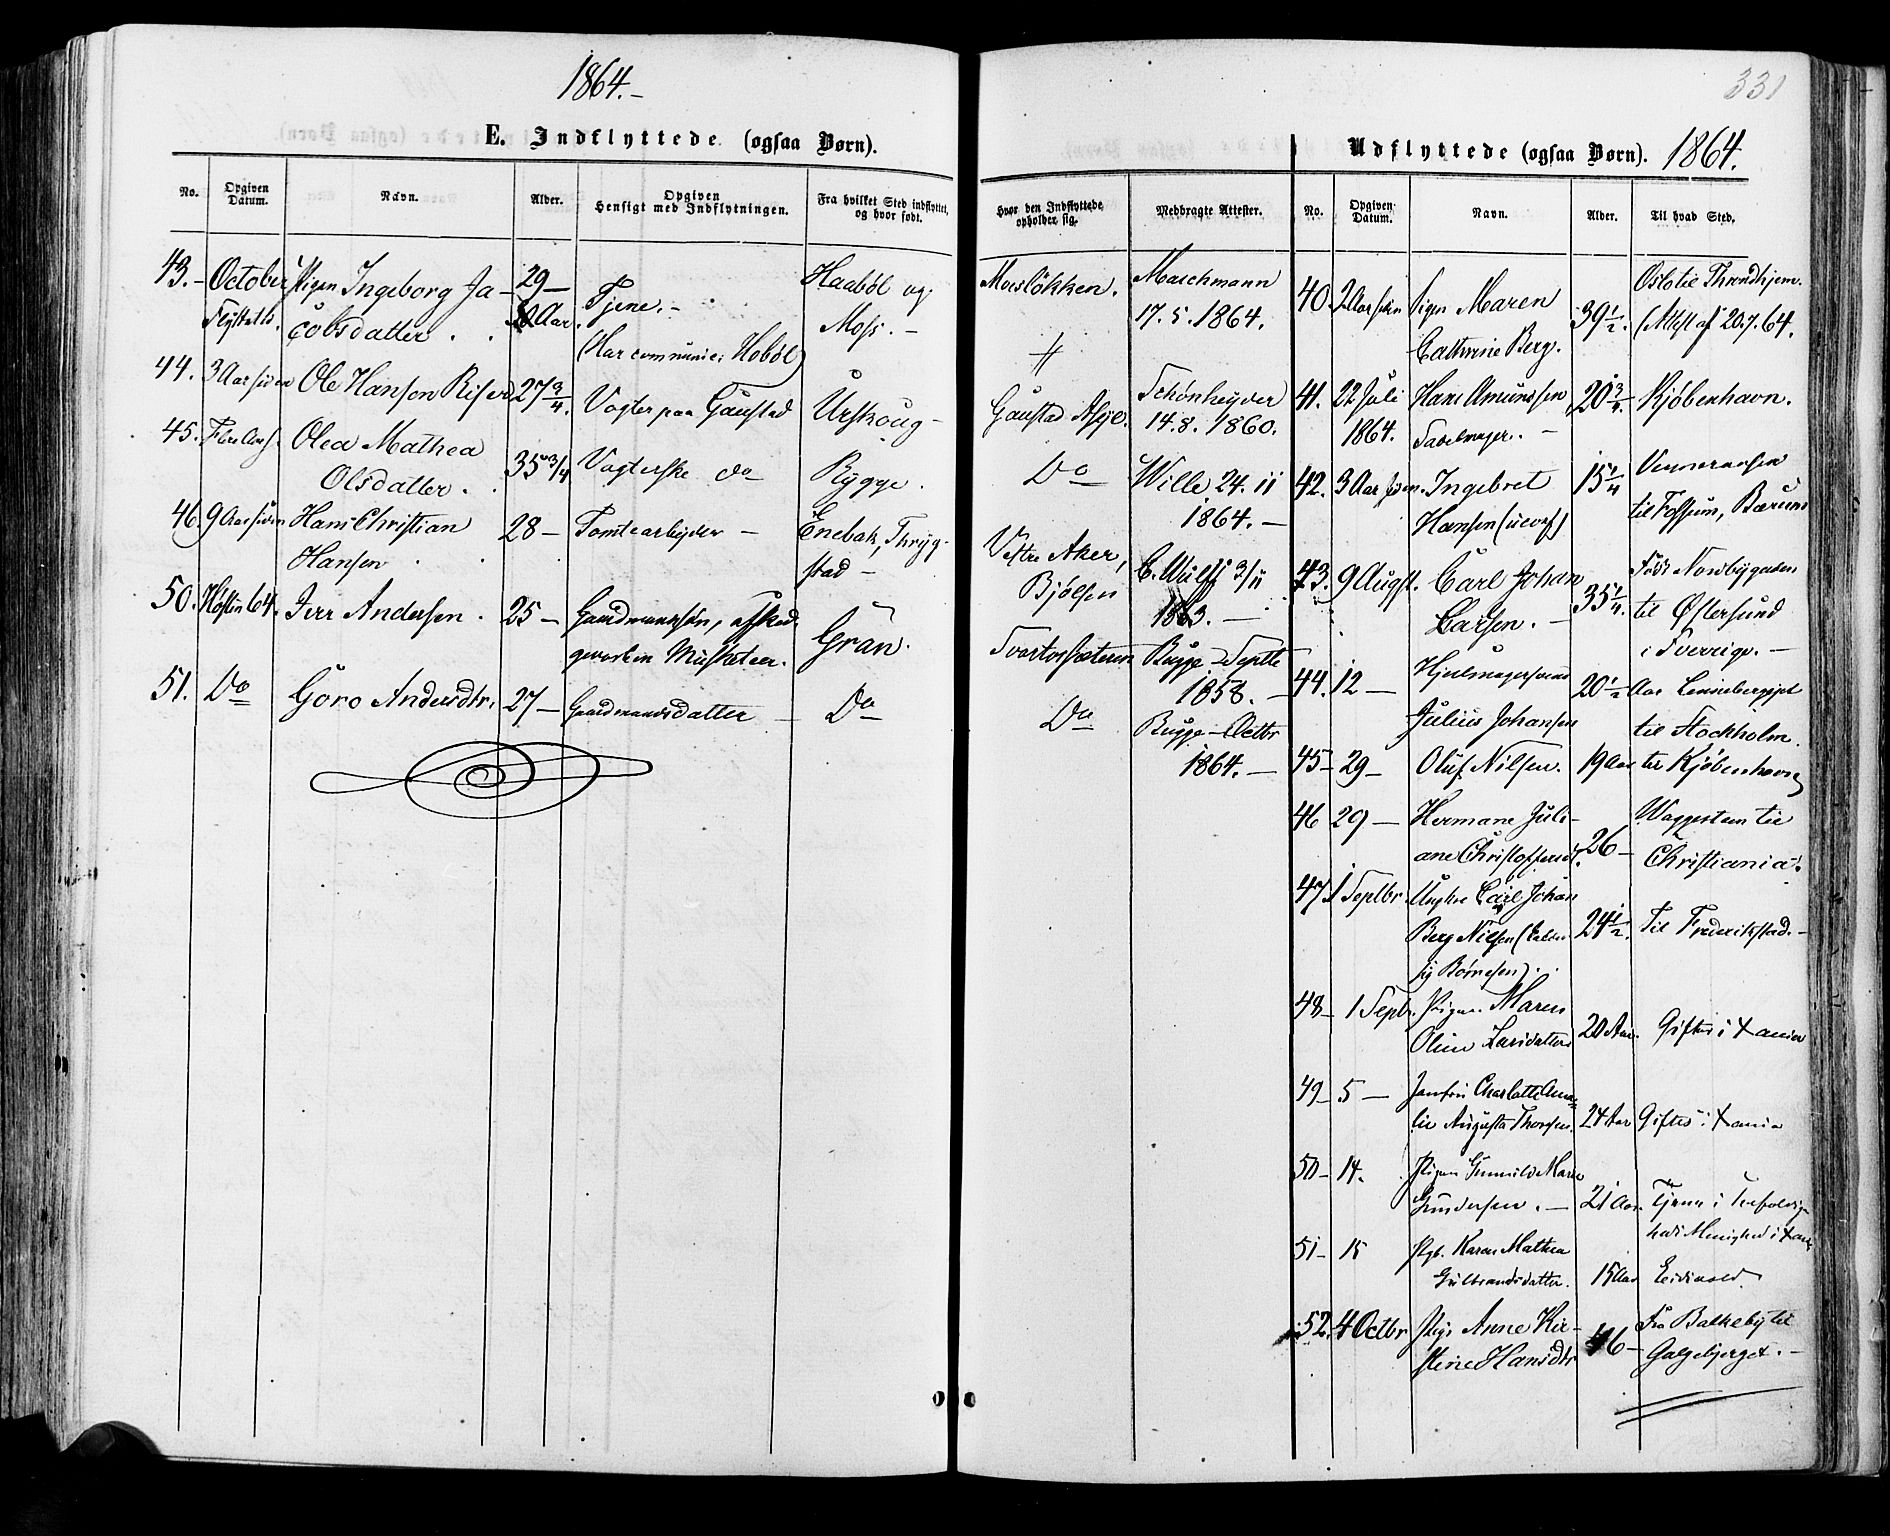 1864.-
E. Indflyttede (ogsaa Børn).
No.
Opgiven Datum.
Navn.
Alder.
Opgiven Hensigt med Indflytningen.
Fra hvilket Sted indflyttet, og hvor født.
43.- October Pigen Ingeborg Ja- 29- Tjene.- Haabøl og
Flyttetid. cobsdatter. Aar. (Har commun. i Hobøl) Moss.-
44. 3 Aar siden Ole Hansen Riser 27 3/4. Vogter paa Gaustad Urskoug-
45. Olea Mathea 35 3/4 Vogterske do Rygge.
Olsdatter.
46. 9 Aar siden Hans Christian 28- Tomtearbejder- Enebak, Thryg-
Hansen stad-
50. Høsten 64. Iver Andersen. 25- Gaardmandssøn, afsked Gran.
geworben Musketeer.
51. Do Goro Andersdtr. 27- Gaardmandsdatter- Do
331
Udflyttede (ogsaa Børn). 1864.
Hvor den Indflyttede opholder sig.
Medbragte Attester.
No.
Opgiven Datum.
Navn.
Alder.
Til hvad Sted.
Morsløkken. Maschmann
17.5.1864.
Gaustad Asyl. Schønheyder
14.8.1860.
Do Wille 24.11
1864.-
Vestre Aker, C. Wulff 3/11
Bjølsen 1863.-
Bugge - Septbr
1858.-
Do Bugge - Octbr
1864.-
40. 2 Aar siden Pigen Maren 39 1/2. Oslo til Throndhjem.
Cathrine Berg. (Attest af 20.7.64.
41. 22 Juli Hans Amundsen 20 3/4 Kjøbenhavn.
1864. Sadelmager.-
42. 3 Aar siden. Ingebret 15 1/4
Hansen (ucon.) til Fossum, Bærum
43. 9 Augst. Carl Johan 35 1/4. Født Nordbygaden
Larsen.- til Østersund
i Sverrige.-
44. 12- Hjulmagersvend 20 1/2 Aar
Julius Johansen til Stockholm.
45- 29- Oluf Nilsen. 19 Aar til Kjøbenhavn
46 29- Hermane Juli- 26- Waggestem til
ane Christoffersdt. Christiania.
47. 1 Septbr. Ungkr Carl Johan 24 1/2. Til Frederikstad.-
Berg Nilsen (kalder
sig Børnesen).
48- 1 Sepbr. Pigen Maren 20 Aar. Giftes i Xania
Oline Larsdatter
49- 5- Jomfru Charlotte Ama- 24 Aar Giftes i Xania
lie Augusta Thorsen.
50- 14. Pigen Gunnild Marie 21 Aar. Tjene i Trefoldig-
Gundersen.- heds Menighed i Xania
51- 15 Pgb. Karen Mathea
Gulbrandsdatter. 15 Aar Eidsvold
52. 4 Octbr Pige Anne Kir- 46- Fra Bakkeby til
stine Hansdtr Galgebjerget.-